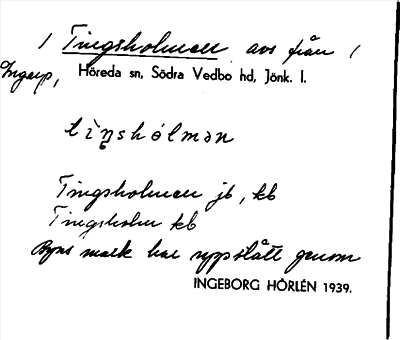 / Tingsholmen avs från /
Ingarp, Höreda sn, Södra Vedbo hd, Jönk. l.
tìŋshólmən
Tingsholmen jb, kb
Tingsholm kb
Byns mark har uppstått genom
INGEBORG HÖRLÉN 1939.